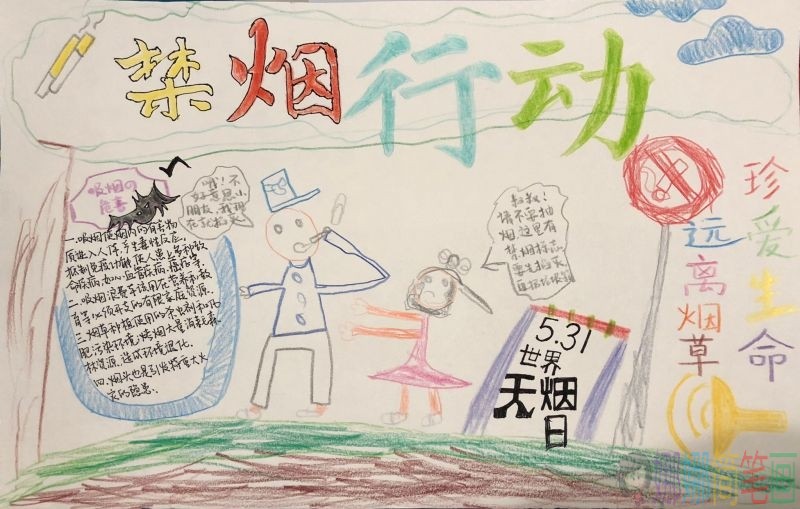 禁烟行动
吸烟の
危害
一.吸烟使烟内的有害物
质进入人体,产生毒性反应,
使人患上多种致
命疾病,如心血管疾病,癌症等
二.吸烟浪费了使用在营养和教
育等必须开支的有限家庭资源.
三.烟草种植使用的杀虫剂和化
肥污染环境,烤烟大量消耗森
林资源,造成环境退化.
四.烟头也是引发特重大火
灾的隐患.
哦!不
好意思小
朋友,我现
在就去灭
叔叔:
请不要抽
烟这里有
禁烟标志
要先掐灭
再扔垃圾箱
5.31
世界
天烟
日
珍爱生命
远离烟草
笔画